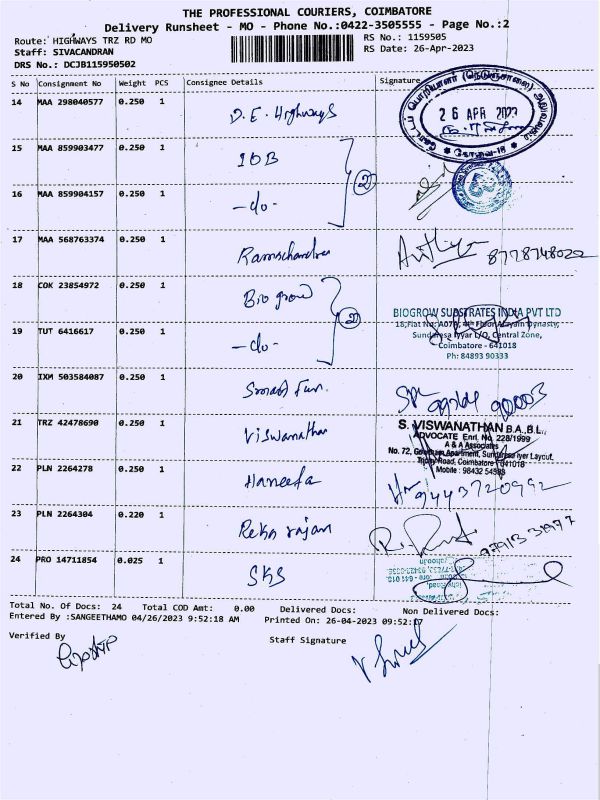 THE PROFESSIONAL COURIERS, COIMBATORE
Delivery Runsheet - MO - Phone No.:0422-3505555 - Page No.:2
Route: HIGHWAYS TRZ RD MO
RS No.: 1159505
Staff: SIVACANDRAN
RS Date: 26-Apr-2023
DRS No.: DCJB115950502
S No Consignment No Weight PCS Consignee Details Signature
14 MAA 298040577 0.250 1 D.E. Highways
26 APR 2023
15 MAA 859903477 0.250 1 IOB
16 MAA 859904157 0.250 1 -do-
2
17 MAA 568763374 0.250 1 Ramchandra 8778748022
18 COK 23854972 0.250 1 Bio grow
BIOGROW SUBSTRATES INDIA PVT LTD
18,Flat No: A07B, 4th Floor Alayam Dynasty,
Sundaresa Iyyar L/O, Central Zone,
Coimbatore - 641018
Ph: 84893 90333
19 TUT 6416617 0.250 1 -do-
2
20 IXM 503584087 0.250 1
21 TRZ 42478690 0.250 1 Viswanathan
S. VISWANATHAN B.A.,B.L.,
ADVOCATE Enrl. No. 228/1999
A & A Associates
No. 72, Gowtham Apartment, Sundaresa Iyer Layout,
Trichy Road, Coimbatore - 641018
Mobile : 98432
22 PLN 2264278 0.250 1 Haneefa 9443720992
23 PLN 2264304 0.220 1 Reka rajan
24 PRO 14711854 0.025 1 SKS
Total No. Of Docs: 24 Total COD Amt: 0.00 Delivered Docs: Non Delivered Docs:
Entered By :SANGEETHAMO 04/26/2023 9:52:18 AM Printed On: 26-04-2023 09:52:17
Verified By
Staff Signature